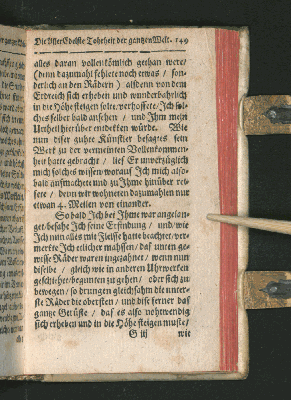 Die AllerEdelste Tohrheit der gantzen Welt. 149
alles daran vollentömlich gethan were/
(denn dazumahl fehlete noch etwas / son-
derlich an den Rädern) alsdenn von dem
Erdreich sich erheben und wunderbahrlich
in die Höhe steigen solte/verhoffete/Ich sol-
ches selber bald ansehen / und Ihm mein
Urtheil hierüber entdekken würde. Wie
nun diser guhte Künstler besagtes sein
Werk zu der vermeinten Vollenkommen-
heit hatte gebracht / lief Er unverzüglich
mich solches wissen worauf Ich mich also-
bald aufmachete und zu Ihme hinüber rei-
sete / denn wir wohneten dazumahlen nur
etwan 4. Meilen von einander.
So bald Ich bey Ihme war angelan-
get/besahe Ich seine Erfindung / und wie
Ich nun alles mit Fleisse hatte beachtet/ver-
merkte Ich etlicher mahssen/daß unten ge-
wisse Räder waren eingezahnet / wenn nun
diselbe / gleich wie in anderen Uhrwerken
geschihet/beginnen zu gehen / oder sich zu
bewegen/ so drungen gleichsahm die unter-
ste Räder die obersten / und dise ferner das
gantze Gerüste / daß es also nohtwendig
sich erheben und in die Höhe steigen muste/
wie